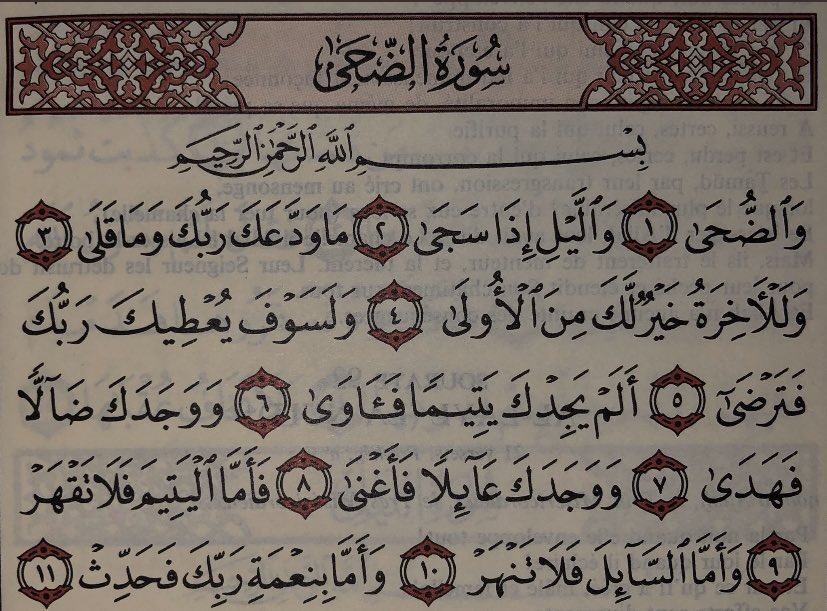 سُورَةُ الضُّحَىٰ
بِسْمِ ٱللَّهِ ٱلرَّحْمَٰنِ ٱلرَّحِيمِ
وَٱلضُّحَىٰ ١ وَٱلَّيْلِ إِذَا سَجَىٰ ٢ مَا وَدَّعَكَ رَبُّكَ وَمَا قَلَىٰ ٣
وَلَلْأَخِرَةُ خَيْرٌ لَّكَ مِنَ ٱلْأُولَىٰ ٤ وَلَسَوْفَ يُعْطِيكَ رَبُّكَ
فَتَرْضَىٰ ٥ أَلَمْ يَجِدْكَ يَتِيمًا فَـَٔاوَىٰ ٦ وَوَجَدَكَ ضَآلًّا
فَهَدَىٰ ٧ وَوَجَدَكَ عَآئِلًا فَأَغْنَىٰ ٨ فَأَمَّا ٱلْيَتِيمَ فَلَا تَقْهَرْ
٩ وَأَمَّا ٱلسَّآئِلَ فَلَا تَنْهَرْ ١٠ وَأَمَّا بِنِعْمَةِ رَبِّكَ فَحَدِّثْ ١١